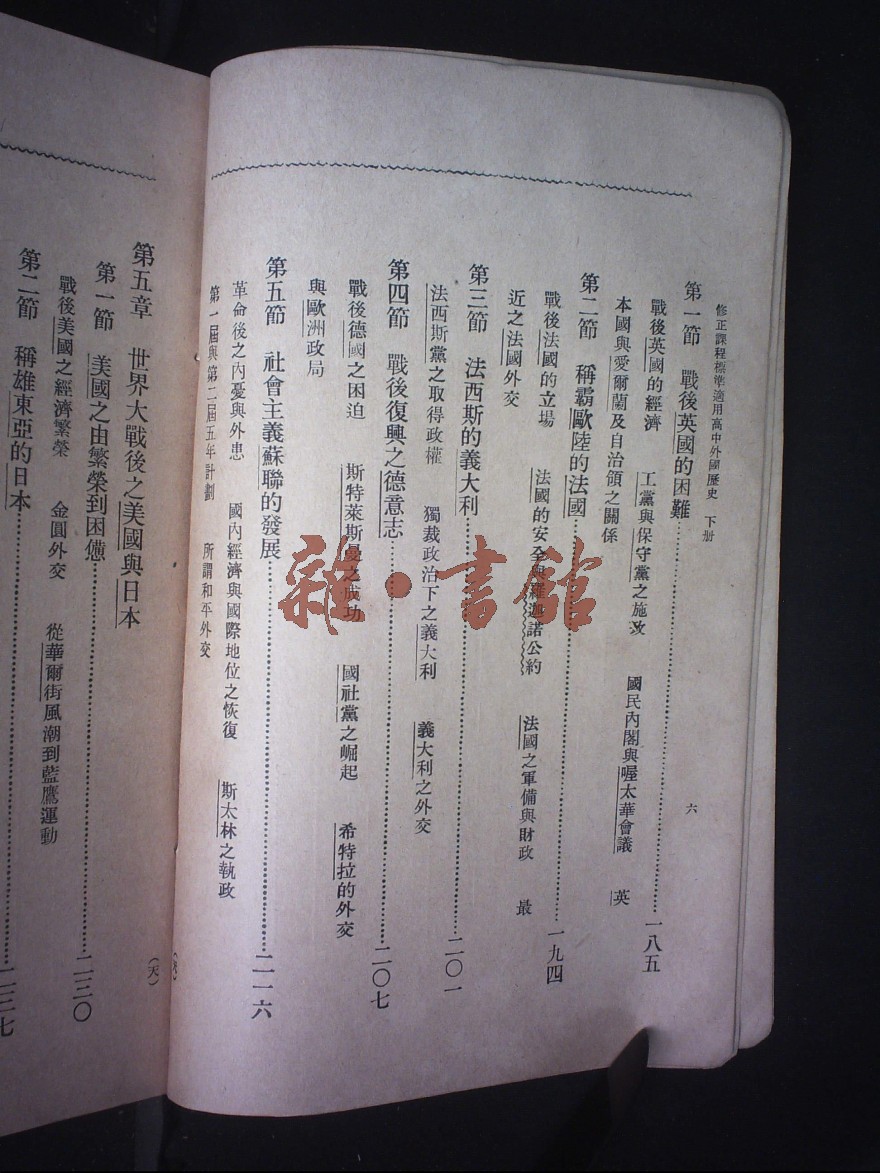 修正課程標準適用高中外國歷史 下册
六
第一節 戰後英國的困難……一八五
戰後英國的經濟 工黨與保守黨之施政 國民內閣與喔太華會議 英
本國與愛爾蘭及自治領之關係
第二節 稱霸歐陸的法國……一九四
戰後法國的立場 法國的安全與羅迦諾公約 法國之軍備與財政 最
近之法國外交
第三節 法西斯的義大利……二〇一
法西斯黨之取得政權 獨裁政治下之義大利 義大利之外交
第四節 戰後復興之德意志……二〇七
戰後德國之困迫 斯特萊斯曼之成功 國社黨之崛起 希特拉的外交
與歐洲政局
第五節 社會主義蘇聯的發展……二一六
革命後之內憂與外患 國內經濟與國際地位之恢復 斯太林之執政
第一屆與第二屆五年計劃 所謂和平外交
第五章 世界大戰後之美國與日本
第一節 美國之由繁榮到困憊……二三〇
戰後美國之經濟繁榮 金圓外交 從華爾街風潮到藍鷹運動
第二節 稱雄東亞的日本……二三七
雜·書館